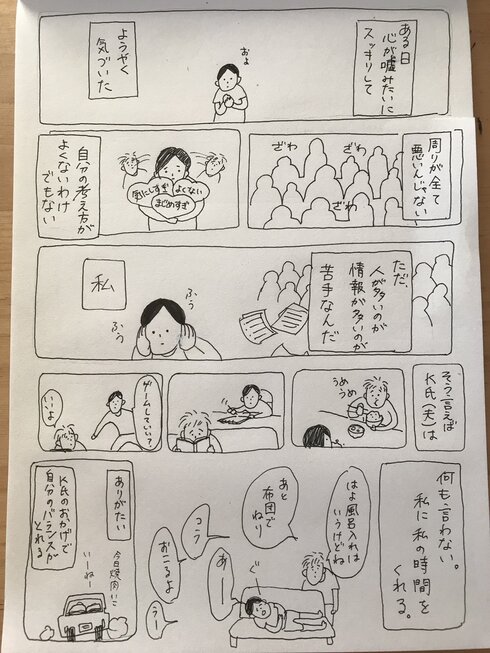 ある日
心が嘘みたいに
スッキリして
およ
ようやく
気づいた
周りが全て
悪いんじゃない
ざわ
ざわ
ざわ
気にしすぎ
よくない
まじめすぎ
自分の考え方が
よくないわけ
でもない
ただ、
人が多いのが
情報が多いのが
苦手なんだ
私
ふう
ふう
そう言えば
K氏(夫)は
うめ
うめ
ゲームしていい?
いいよ
何も言わない。
私に私の時間を
くれる。
はよ風呂入れは
いうけどね
あと
布団で
ねり
コラ
おこるよ
ぐー
あー
うー
ありがたい
K氏のおかげで
自分のバランスが
とれる
今日焼肉いこ
いーねー